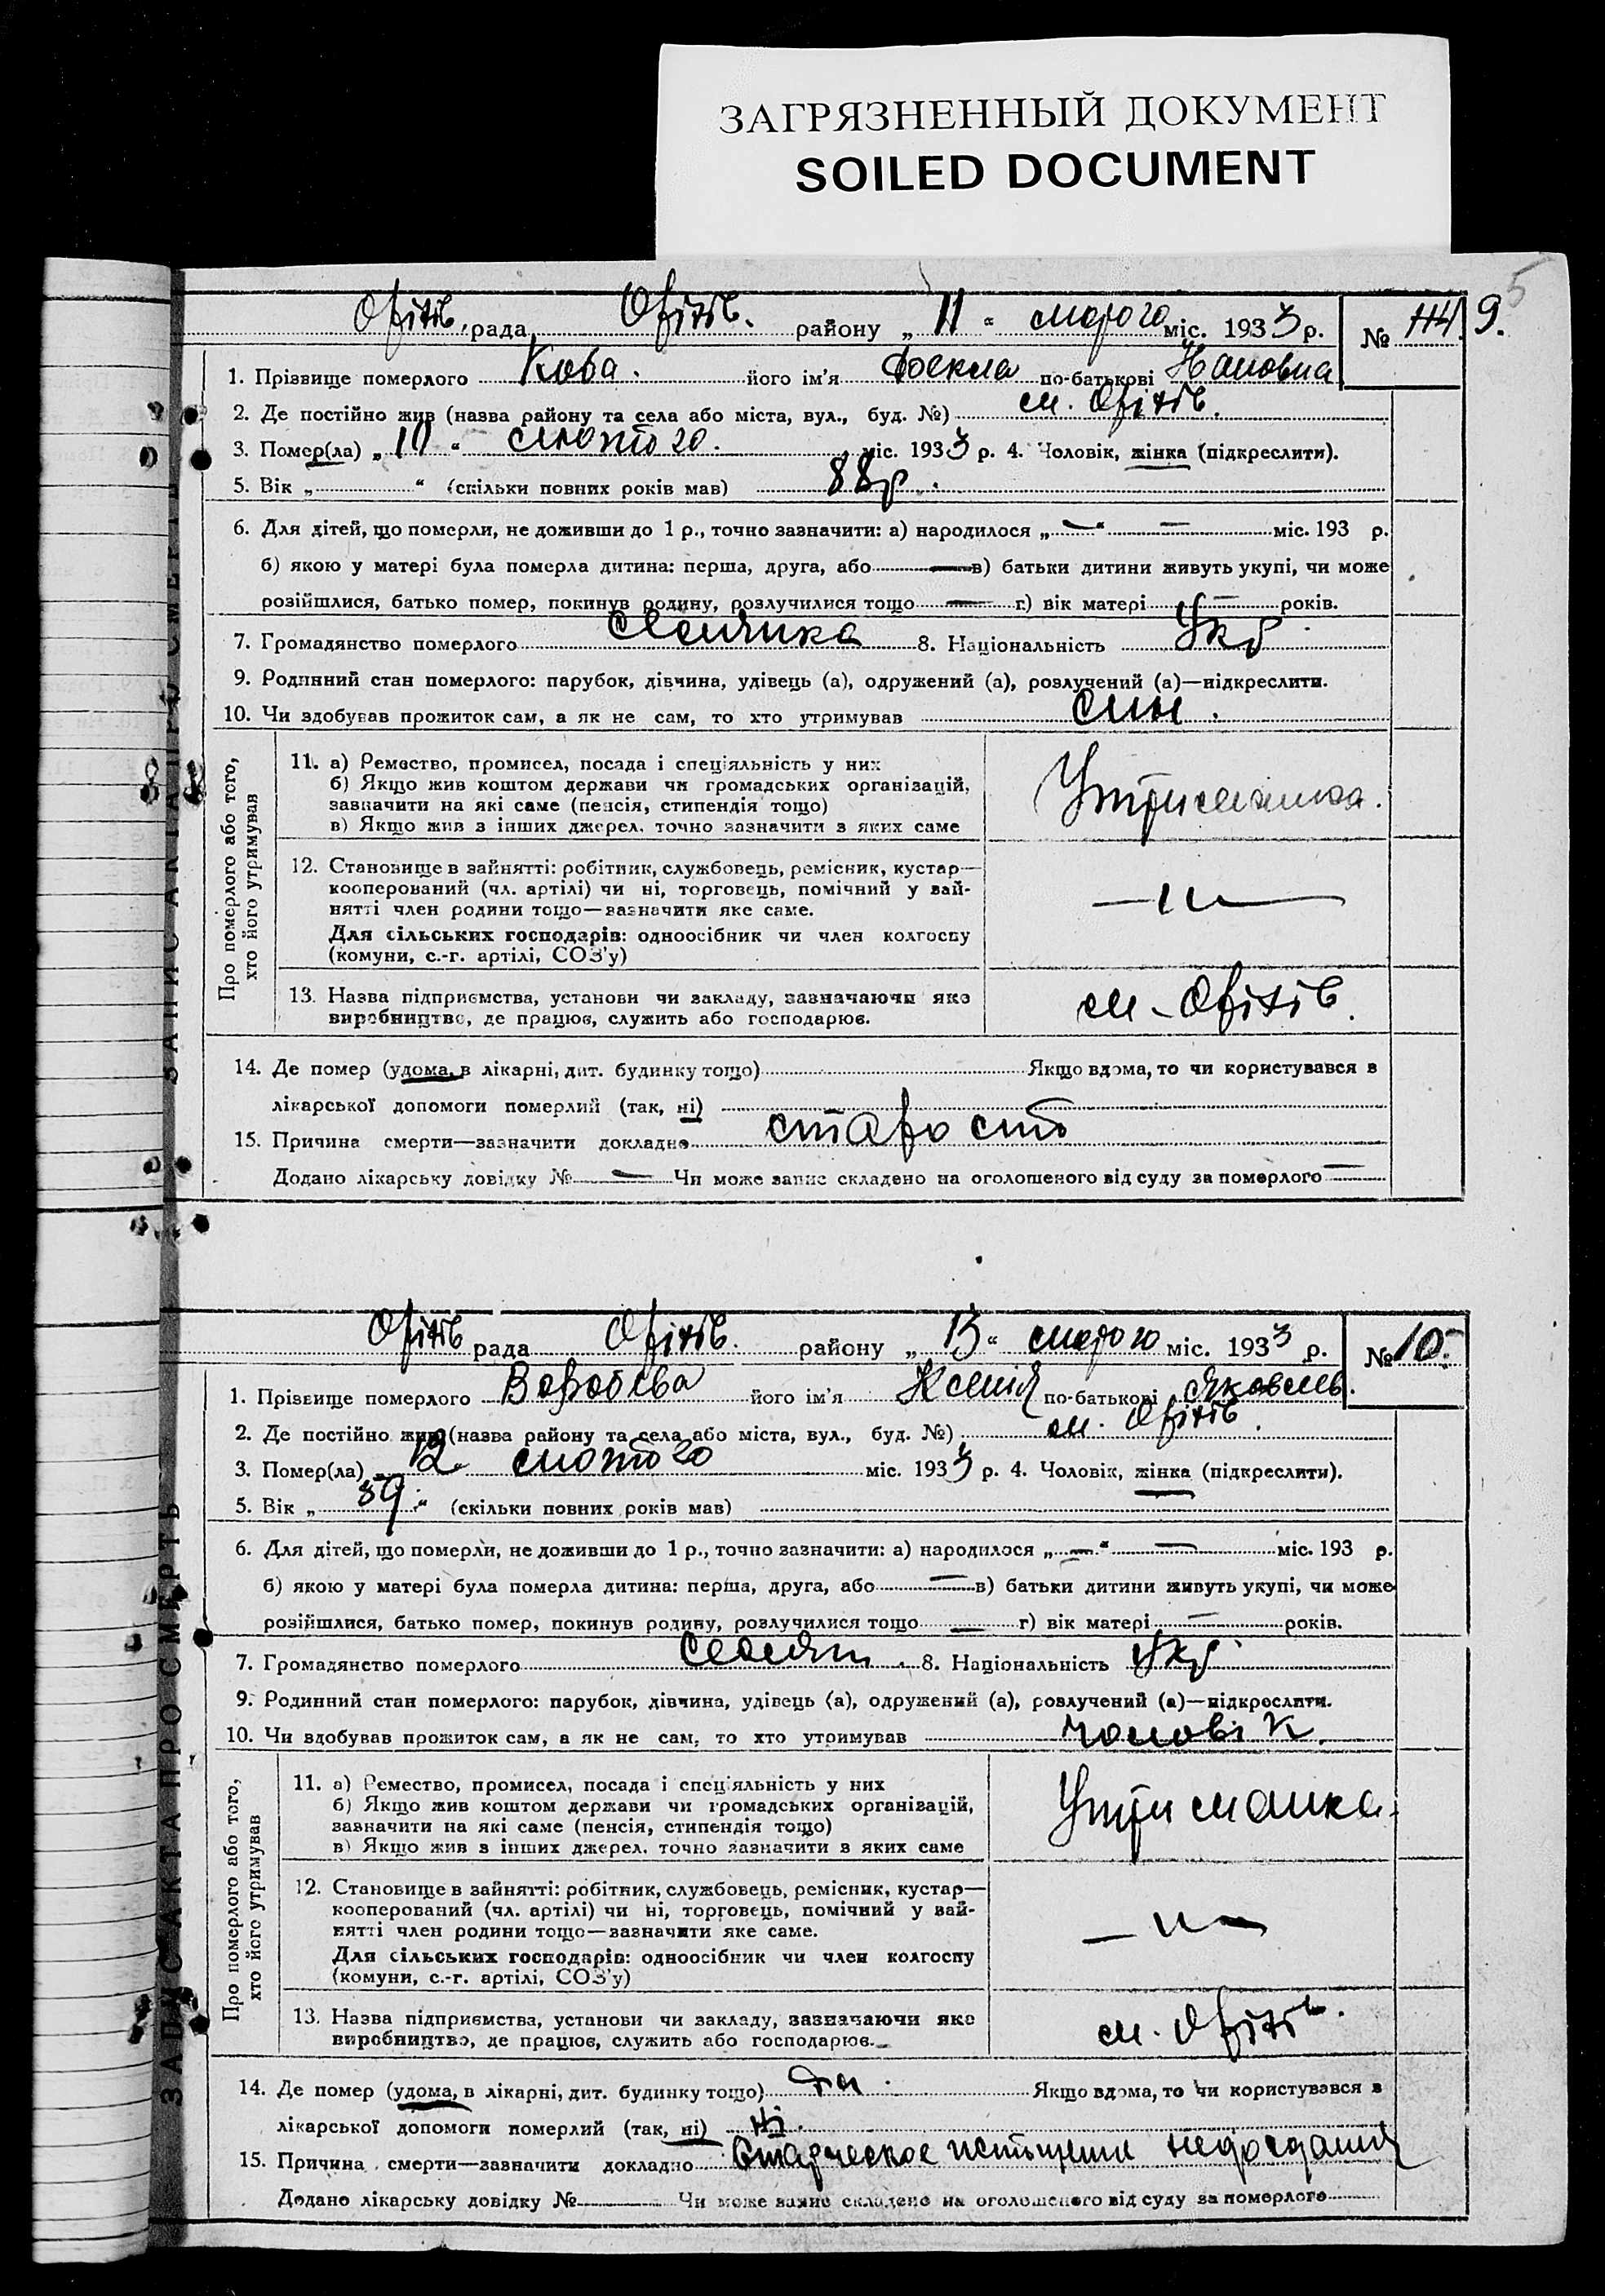 ЗАГРЯЗНЕННЫЙ ДОКУМЕНТ
SOILED DOCUMENT
5
Оріхів. рада Оріхів. району „ 11 “ лютого міс. 1933 р. № 9.
1. Прізвище померлого Коба. його ім'я Фекла по-батькові
2. Де постійно жив (назва району та села або міста, вул., буд. №) м. Оріхів.
3. Помер(ла) „ 10 “ лютого. міс. 1933 р. 4. Чоловік, жінка (підкреслити).
5. Вік „ “ (скільки повних років мав) 88 р.
6. Для дітей, що померли, не доживши до 1 р., точно зазначити: а) народилося „ — “ — міс. 193 р.
б) якою у матері була померла дитина: перша, друга, або — в) батьки дитини живуть укупі, чи може
розійшлися, батько помер, покинув родину, розлучилися тощо — г) вік матері — років.
7. Громадянство померлого Селянка 8. Національність Укр.
9. Родинний стан померлого: парубок, дівчина, удівець (а), одружений (а), розлучений (а)—підкреслити.
10. Чи здобував прожиток сам, а як не сам, то хто утримував Син.
Про померлого або того, хто його утримував
11. а) Ремество, промисел, посада і спеціяльність у них
б) Якщо жив коштом держави чи громадських організацій,
зазначити на які саме (пенсія, стипендія тощо)
в) Якщо жив з інших джерел, точно зазначити з яких саме
Утриманка.
12. Становище в зайнятті: робітник, службовець, ремісник, кустар—
кооперований (чл. артілі) чи ні, торговець, помічний у зай-
нятті член родини тощо—зазначити яке саме.
Для сільських господарів: одноосібник чи член колгоспу
(комуни, с.-г. артілі, СОЗ'у)
— „ —
13. Назва підприємства, установи чи закладу, зазначаючи яке
виробництво, де працює, служить або господарює.
м. Оріхів.
14. Де помер (удома, в лікарні, дит. будинку тощо) Якщо вдома, то чи користувався в
лікарської допомоги померлий (так, ні)
15. Причина смерти—зазначити докладно старость
Додано лікарську довідку № — Чи може запис складено на оголошеного від суду за померлого —
ЗАПИС АКТА ПРО СМЕРТЬ
Оріхів рада Оріхів. району „ 13 “ лютого міс. 1933 р. № 10.
1. Прізвище померлого Воробєва його ім'я Ксенія по-батькові Яковлев.
2. Де постійно жив (назва району та села або міста, вул., буд. №) м. Оріхів.
3. Помер(ла) 12 лютого міс. 1933 р. 4. Чоловік, жінка (підкреслити).
5. Вік „ 89 “ (скільки повних років мав)
6. Для дітей, що померли, не доживши до 1 р., точно зазначити: а) народилося „ — “ — міс. 193 р.
б) якою у матері була померла дитина: перша, друга, або — в) батьки дитини живуть укупі, чи може
розійшлися, батько помер, покинув родину, розлучилися тощо — г) вік матері — років.
7. Громадянство померлого Селян. 8. Національність Укр.
9. Родинний стан померлого: парубок, дівчина, удівець (а), одружений (а), розлучений (а)—підкреслити.
10. Чи здобував прожиток сам, а як не сам, то хто утримував чоловік.
Про померлого або того, хто його утримував
11. а) Ремество, промисел, посада і спеціяльність у них
б) Якщо жив коштом держави чи громадських організацій,
зазначити на які саме (пенсія, стипендія тощо)
в) Якщо жив з інших джерел, точно зазначити в яких саме
Утриманка.
12. Становище в зайнятті: робітник, службовець, ремісник, кустар—
кооперований (чл. артілі) чи ні, торговець, помічний у зай-
нятті член родини тощо—зазначити яке саме.
Для сільських господарів: одноосібник чи член колгоспу
(комуни, с.-г. артілі, СОЗ'у)
— „ —
13. Назва підприємства, установи чи закладу, зазначаючи яке
виробництво, де працює, служить або господарює.
м. Оріхів.
14. Де помер (удома, в лікарні, дит. будинку тощо) Якщо вдома, то чи користувався в
лікарської допомоги померлий (так, ні) ні.
15. Причина смерти—зазначити докладно Старческое недоедания
Додано лікарську довідку № Чи може запис складено на оголошеного від суду за померлого
ЗАПИС АКТА ПРО СМЕРТЬ